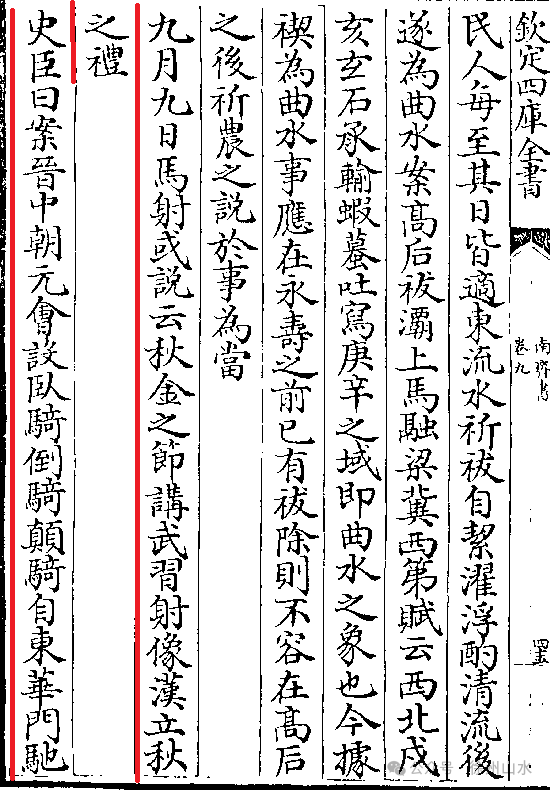 欽定四庫全書
南齊書
卷九
民人每至其日皆適東流水祈祓自絜濯浮酌清流後
遂為曲水案高后祓灞上馬融梁冀西第賦云西北戌
亥玄石承輸蝦蟇吐寫庚辛之域即曲水之象也今據
禊為曲水事應在永壽之前已有祓除則不容在高后
之後祈農之說於事為當
九月九日馬射或說云秋金之節講武習射像漢立秋
之禮
史臣曰案晉中朝元會設臥騎倒騎顛騎自東華門馳